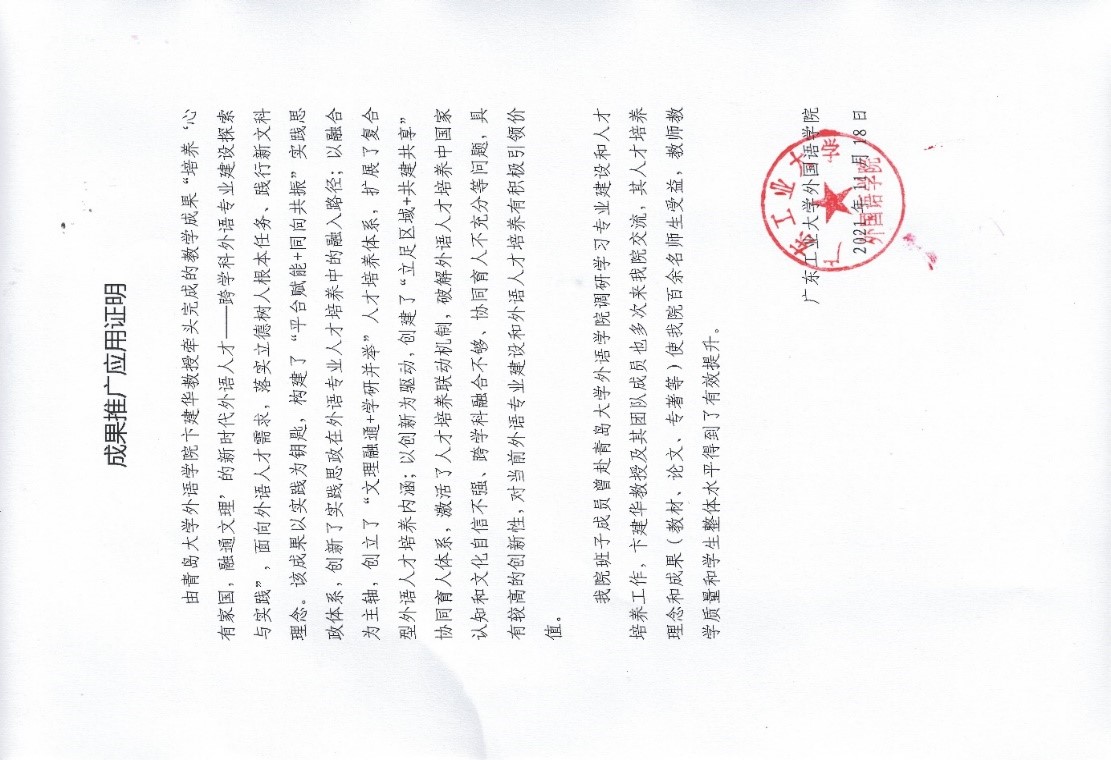 成果推广应用证明
由青岛大学外语学院卞建华教授牵头完成的教学成果“培养‘心
有家国，融通文理’的新时代外语人才——跨学科外语专业建设探索
与实践”，面向外语人才需求，落实立德树人根本任务、践行新文科
理念。该成果以实践为钥匙，构建了“平台赋能+同向共振”实践思
政体系，创新了实践思政在外语专业人才培养中的融入路径；以融合
为主轴，创立了“文理融通+学研并举”人才培养体系，扩展了复合
型外语人才培养内涵；以创新为驱动，创建了“立足区域+共建共享”
协同育人体系，激活了人才培养联动机制，破解外语人才培养中国家
认知和文化自信不强、跨学科融合不够、协同育人不充分等问题，具
有较高的创新性，对当前外语专业建设和外语人才培养有积极引领价
值。
我院班子成员曾赴青岛大学外语学院调研学习专业建设和人才
培养工作，卞建华教授及其团队成员也多次来我院交流，其人才培养
理念和成果（教材、论文、专著等）使我院百余名师生受益，教师教
学质量和学生整体水平得到了有效提升。
广东工业大学外国语学院
2021年11月18日
广东工业大学
外国语学院